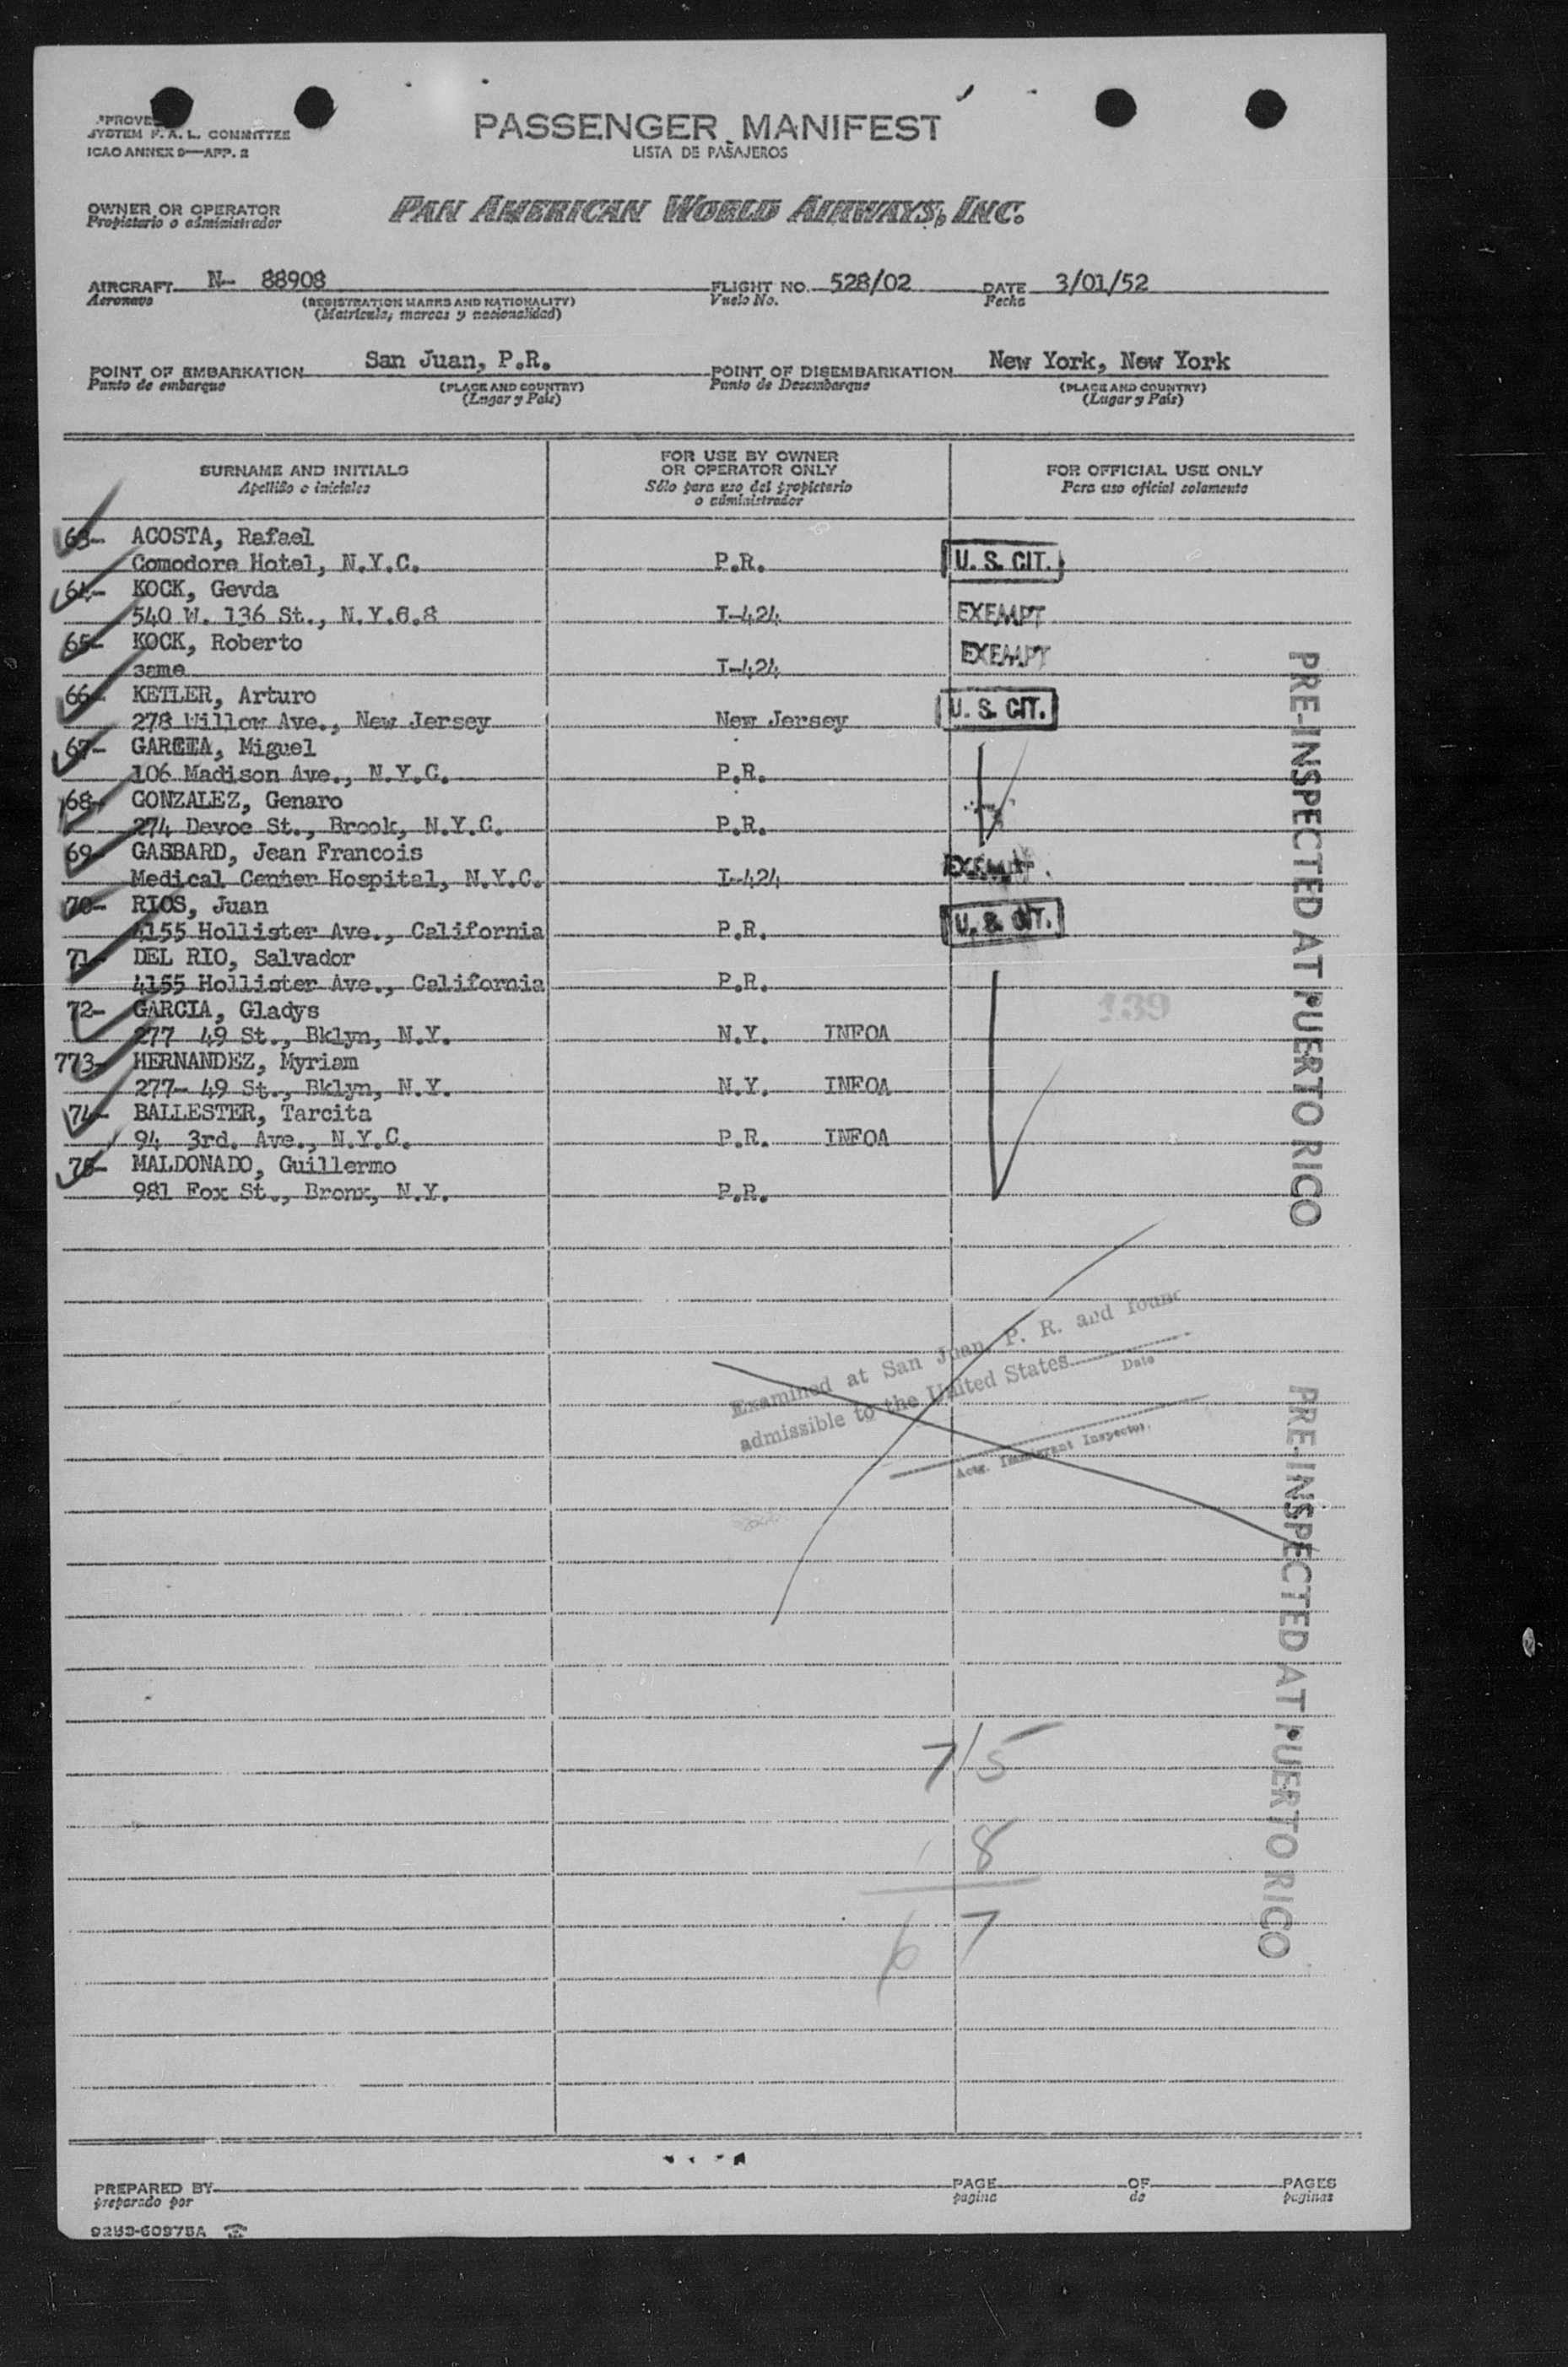 SYSTEM F. A. L. COMMITTEE
ICAO ANNEX 9—APP. 2
PASSENGER MANIFEST
LISTA DE PASAJEROS
OWNER OR OPERATOR
Propietario o administrador
PAN AMERICAN WORLD AIRWAYS, INC.
AIRCRAFT N- 88908 FLIGHT NO. 528/02 DATE 3/01/52
Aeronave (REGISTRATION MARKS AND NATIONALITY) Vuelo No. Fecha
(Matrícula, marcas y nacionalidad)
POINT OF EMBARKATION San Juan, P.R. POINT OF DISEMBARKATION New York, New York
Punto de embarque (PLACE AND COUNTRY) Punto de Desembarque (PLACE AND COUNTRY)
(Lugar y País) (Lugar y País)
SURNAME AND INITIALS FOR USE BY OWNER OR OPERATOR ONLY FOR OFFICIAL USE ONLY
Apellido e iniciales Sólo para uso del propietario o administrador Para uso oficial solamente
63- ACOSTA, Rafael
Comodore Hotel, N.Y.C. P.R. U. S. CIT.
64- KOCK, Gevda
540 W. 136 St., N.Y.6.8 I-424 EXEMPT
65- KOCK, Roberto
same I-424 EXEMPT
66- KETLER, Arturo
278 Willow Ave., New Jersey New Jersey U. S. CIT.
67- GARCIA, Miguel
106 Madison Ave., N.Y.C. P.R.
68- GONZALEZ, Genaro
274 Devoe St., Brook, N.Y.C. P.R.
69- GASBARD, Jean Francois
Medical Cenher Hospital, N.Y.C. I-424 EXEMPT
70- RIOS, Juan
4155 Hollister Ave., California P.R. U. S. CIT.
71- DEL RIO, Salvador
4155 Hollister Ave., California P.R.
139
72- GARCIA, Gladys
277 49 St., Bklyn, N.Y. N.Y. INFOA
773- HERNANDEZ, Myriam
277- 49 St., Bklyn, N.Y. N.Y. INFOA
74- BALLESTER, Tarcita
94 3rd. Ave., N.Y.C. P.R. INFOA
75- MALDONADO, Guillermo
981 Fox St., Bronx, N.Y. P.R.
PRE-INSPECTED AT PUERTO RICO
Examined at San Juan, P. R. and found
admissible to the United States
Date
Actg. Immigrant Inspector.
PRE-INSPECTED AT PUERTO RICO
75
8
67
PREPARED BY PAGE OF PAGES
preparado por pagina de paginas